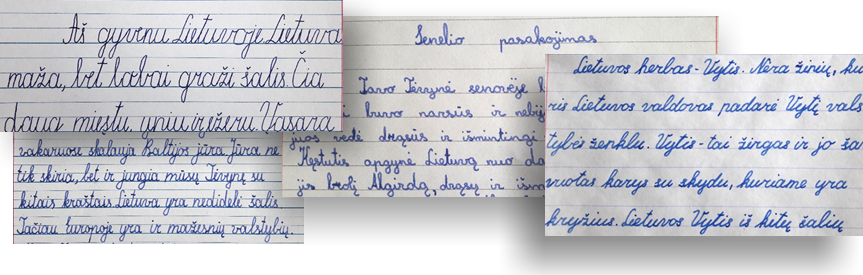 Aš gyvenu Lietuvoje Lietuva
maža, bet labai graži šalis Čia
daug miestų, upių ir ežerų Vasara
vakaruose skalauja Baltijos jūra Jūra ne
tik skiria, bet ir jungia mūsų Tėvynę su
kitais kraštais. Lietuva yra nedidelė šalis.
Tačiau Europoje yra ir mažesnių valstybių.
Senelio pasakojimas
Tavo Tėvynė senovėje
buvo narsūs ir
juos vedė drąsūs ir išmintingi
Kęstutis apgynė Lietuvą nuo
jis brolį Algirdą, drąsų ir
Lietuvos herbas - Vytis. Nėra žinių,
Lietuvos valdovas padarė Vytį
tybės ženklu. Vytis - tai žirgas ir jo
karys su skydu, kuriame yra
kryžius. Lietuvos Vytis iš kitų šalių